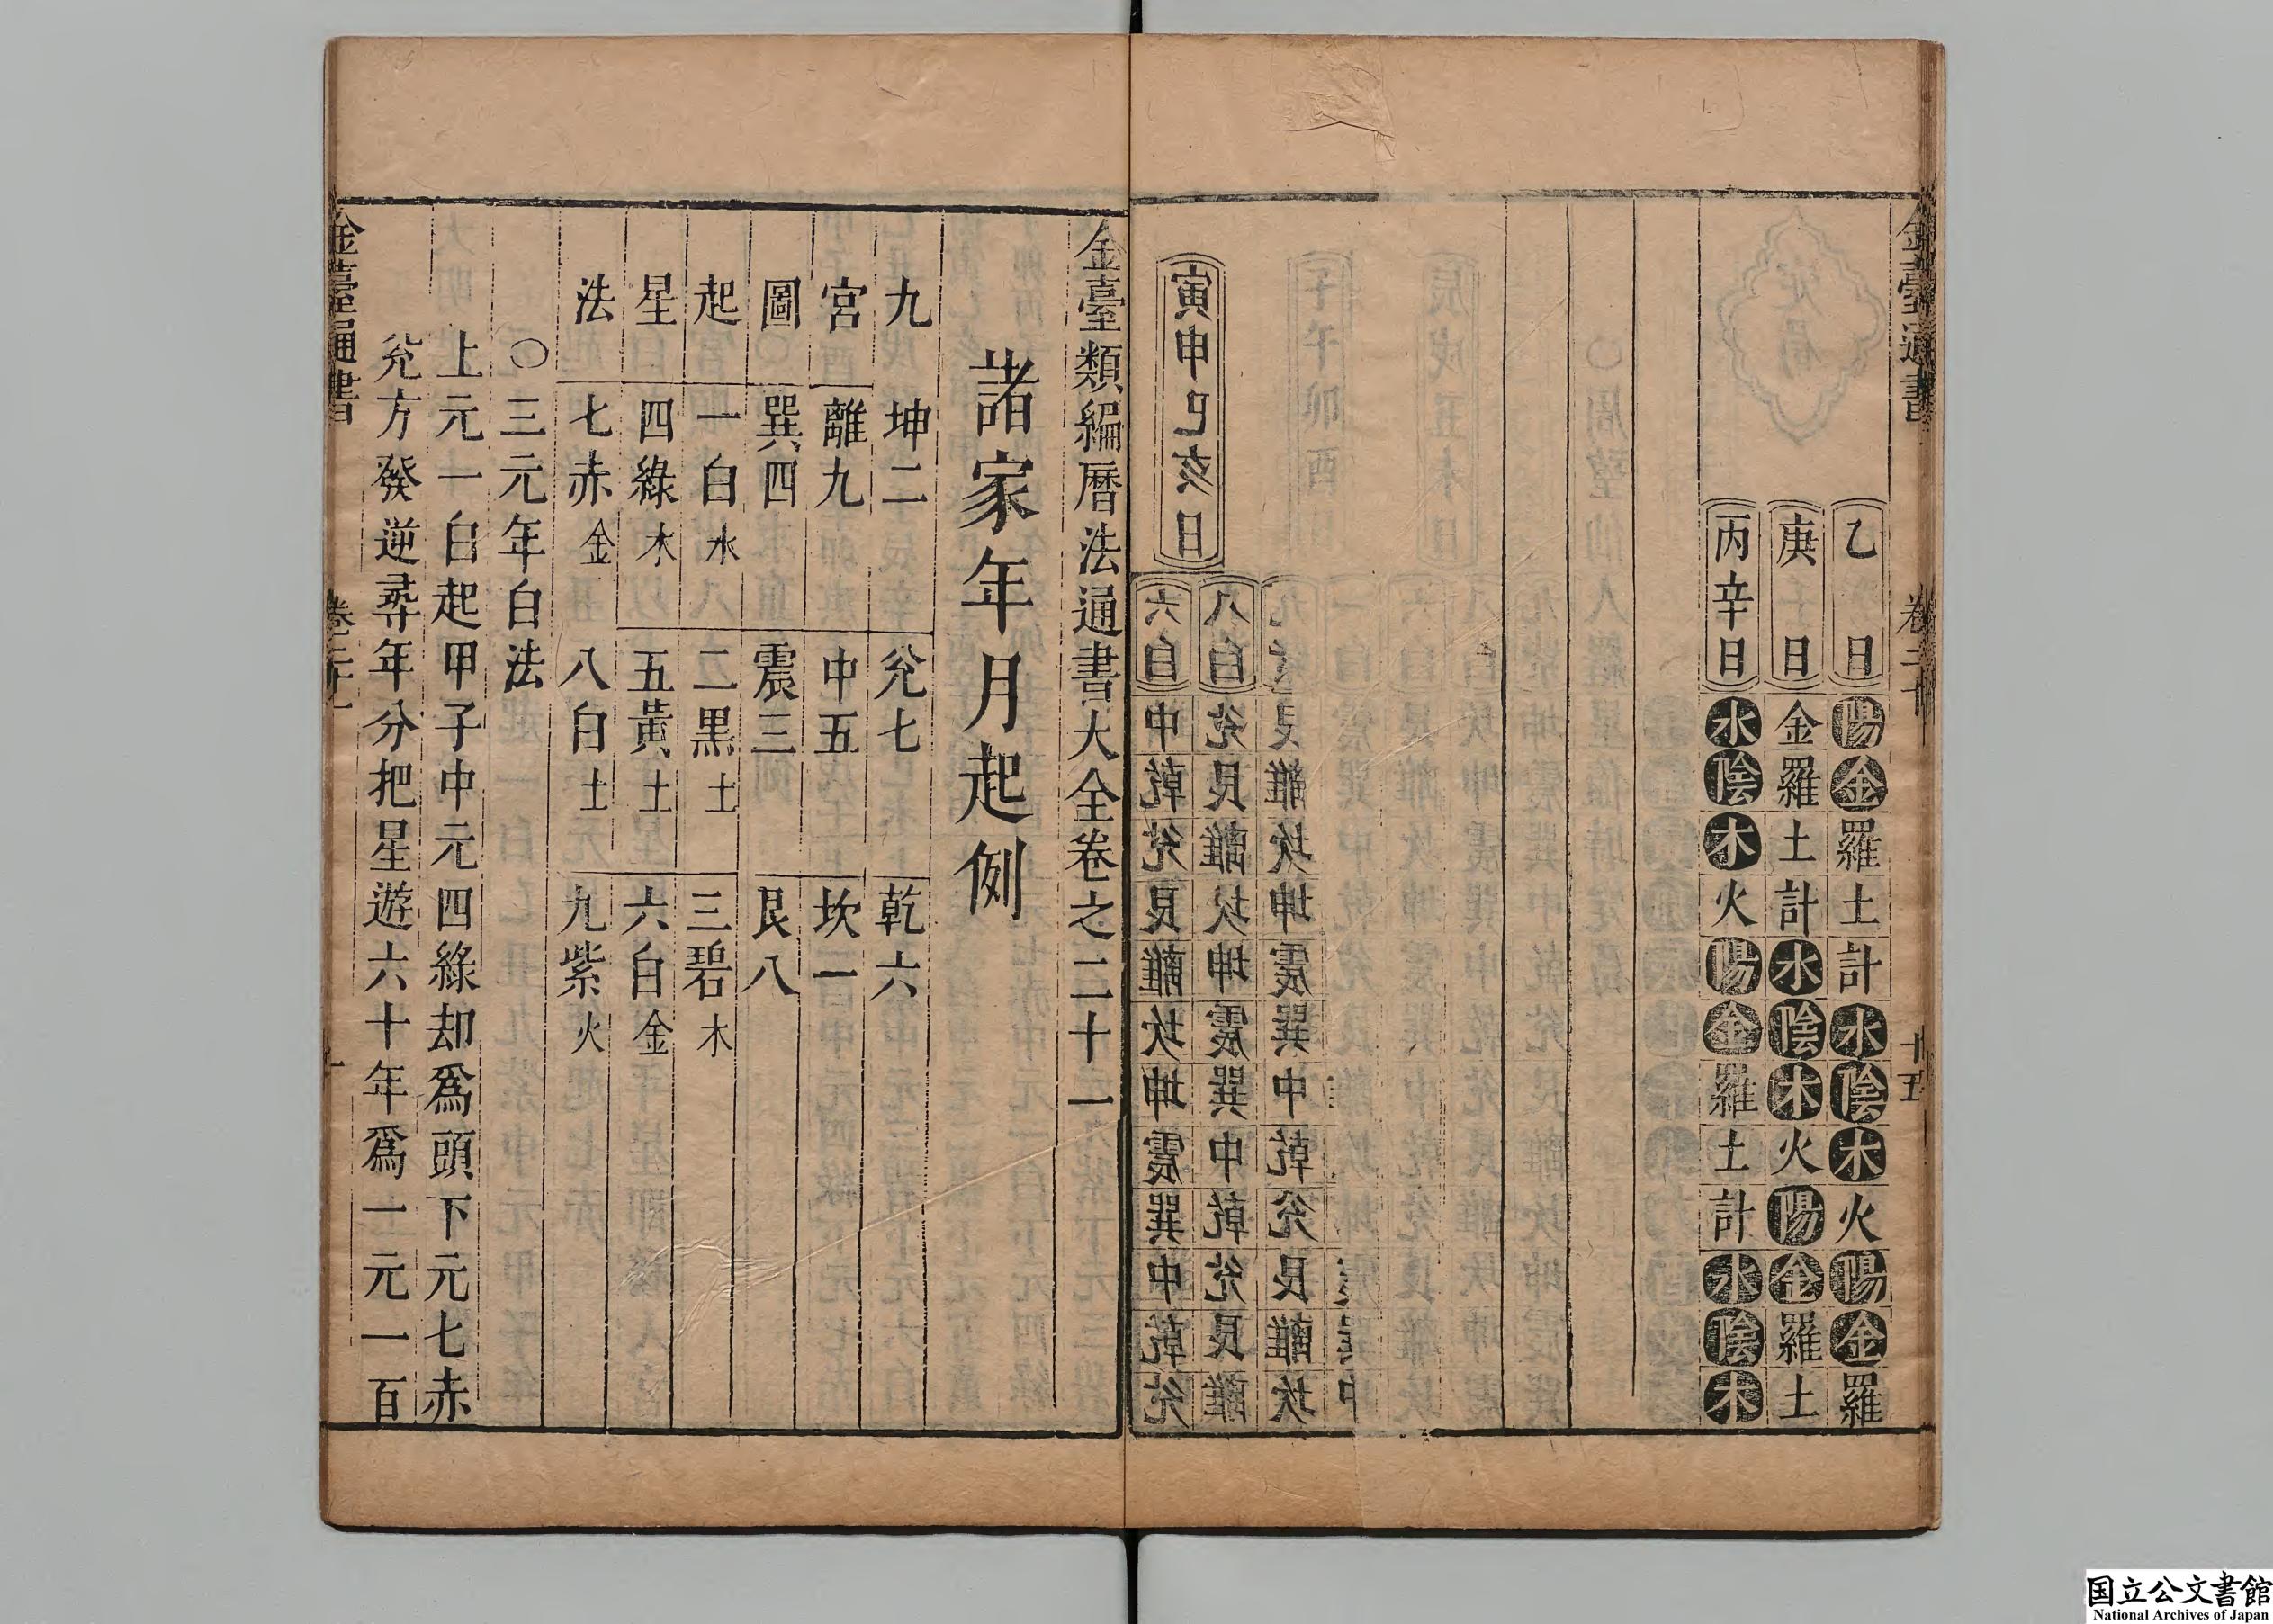 金臺通書
卷二十
十五
乙日陽金羅土計水陰木火陽金羅
庚日金羅土計水陰木火陽金羅土
丙辛日水陰木火陽金羅土計水陰木
九紫艮離坎坤震巽中乾兌艮離坎
八白兌艮離坎坤震巽中乾兌艮離
寅申巳亥日六白中乾兌艮離坎坤震巽中乾兌
金臺類編曆法通書大全卷之二十一
諸家年月起例
九坤二兌七乾六
宮離九中五坎一
圖巽四震三艮八
起一白水二黑土三碧木
星四綠木五黃土六白金
法七赤金八白土九紫火
○三元年白法
上元一白起甲子中元四綠却為頭下元七赤
兌方發逆尋年分把星遊六十年為一元一百
金臺通書
卷二十一
一
国立公文書館
National Archives of Japan